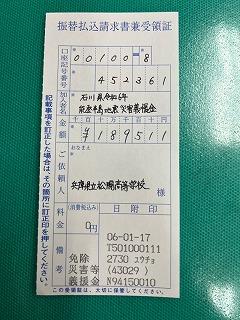 振替払込請求書兼受領証
口座記号番号
00100 8
452361
加入者名
石川県令和6年
能登半島地震災害義援金
金額
千 百 十 万 千 百 十 円
¥189511
ご依頼人
おなまえ
兵庫県立松陽高等学校
様
料金
(消費税込み)
0円
日附印
備考
06-01-17
T501000111
免除 2730 ユウチョ
災害等 (43029 )
義援金 N94150010
この受領証は、大切に保管してください。
記載事項を訂正した場合は、その箇所に訂正印を押してください。